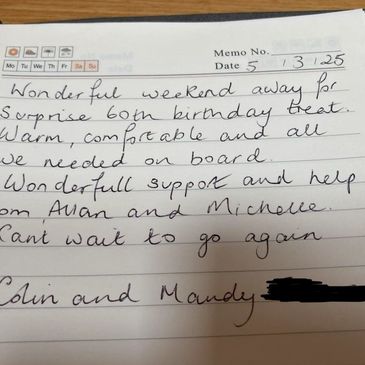 Memo No.
Mo Tu We Th Fr Sa Su
Date 5 / 3 / 25
Wonderful weekend away for
Surprise 60th birthday treat.
Warm, comfortable and all
we needed on board.
Wonderfull support and help
om Allan and Michelle.
Cant wait to go again
Colin and Mandy